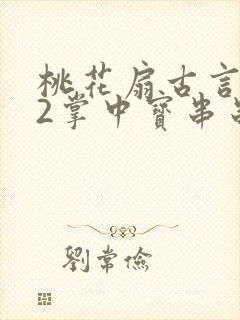 桃花扇古言
2掌中寶串
劉常儉